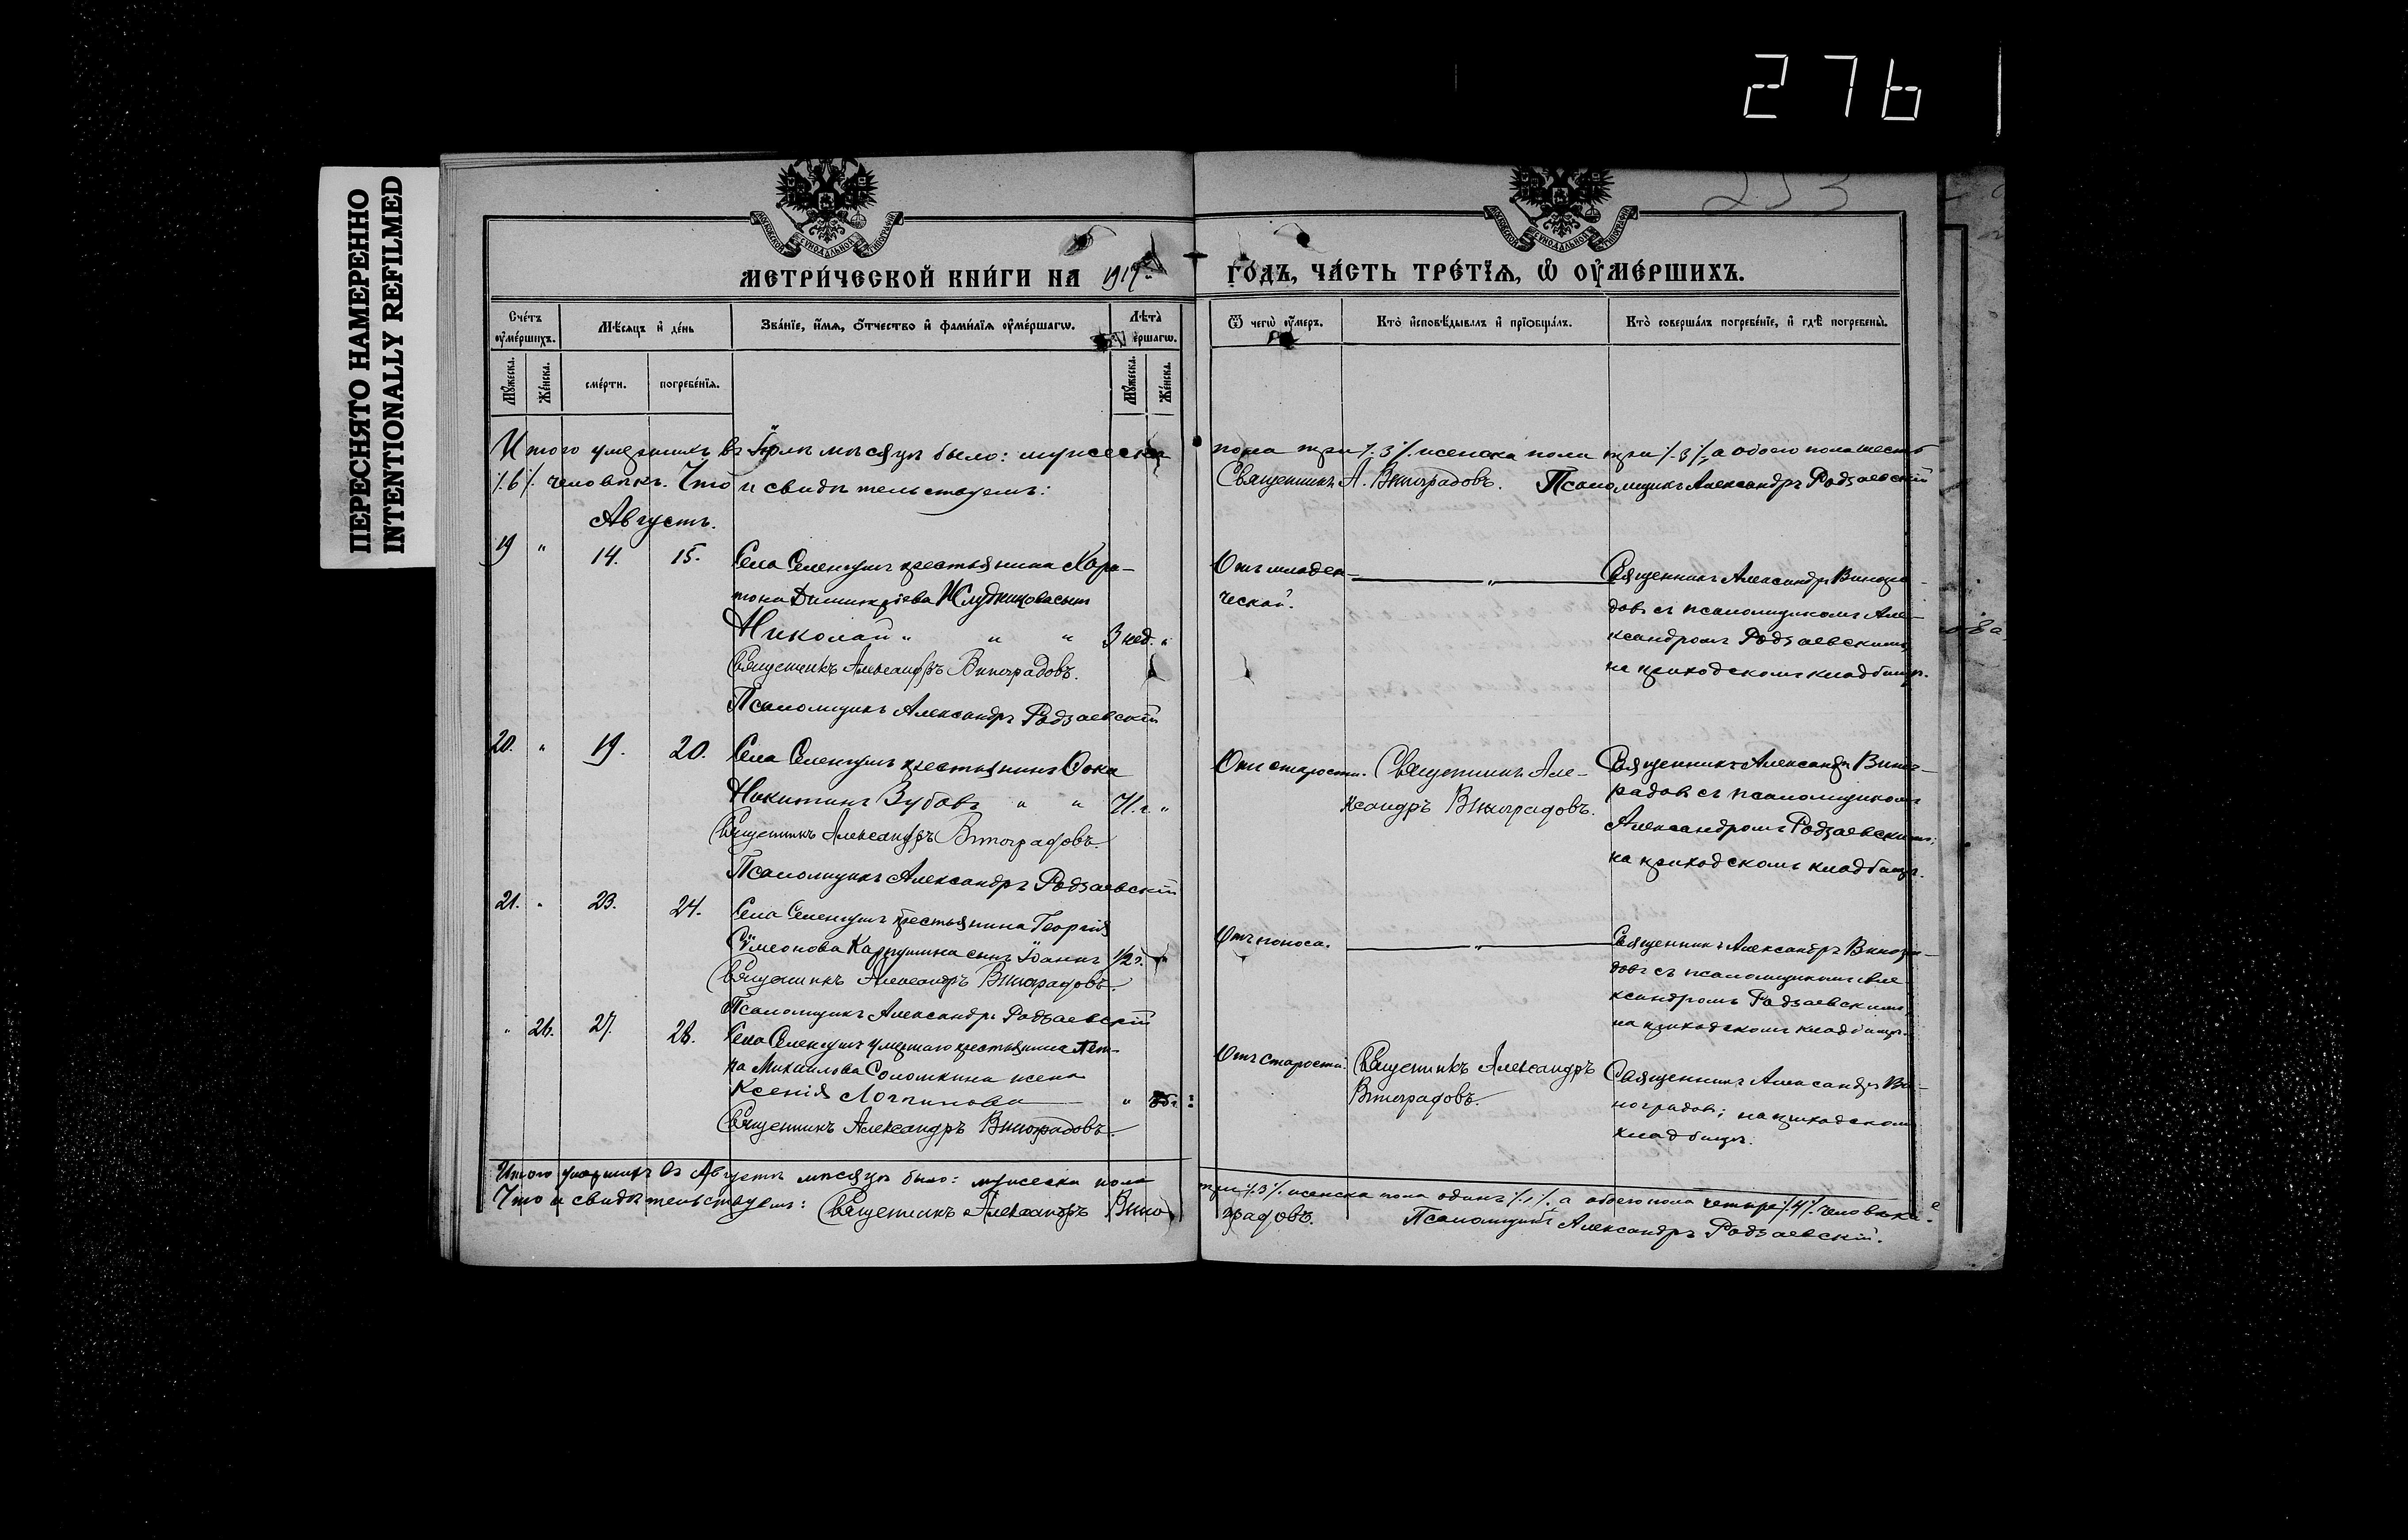 276
ПЕРЕСНЯТО НАМЕРЕННО
INTENTIONALLY REFILMED
253
МОСКОВСКОЙ СѴНОДАЛЬНОЙ ТИПОГРАФІИ
МОСКОВСКОЙ СѴНОДАЛЬНОЙ ТИПОГРАФІИ
МЕТРИ́ЧЕСКОЙ КНИ́ГИ НА 1917 ГО́ДЪ, ЧА́СТЬ ТРЕ́ТЇѦ, Ѡ҆ ОУ҆МЕ́РШИХЪ.
Сче́тъ оу҆ме́ршихъ.
Мѣ́сяцъ и҆ де́нь
Зва́нїе, и҆́мѧ, ѻ҆́тчество и҆ фами́лїѧ оу҆ме́ршагѡ.
Лѣ́та ершагѡ.
Ѿ чегѡ̀ оу҆́меръ.
Кто̀ и҆сповѣ́дывалъ и҆ прїѡбща́лъ.
Кто̀ соверша́лъ погребе́нїе, и҆ гдѣ̀ погребены̀.
Мꙋ́жеска. Же́нска. сме́рти. погребе́нїѧ. Мꙋ́жеска. Же́нска.
Итого умершихъ въ Іюлѣ мѣсяцѣ было: мужеска пола три /.3/. женска пола три /.3/., а обоего пола шесть
/.6/. человѣкъ. Что и свидѣтельствуемъ: Священникъ А. Виноградовъ. Псаломщикъ Александръ Радзаевскій
Августъ.
19 " 14. 15. Села Селенгушъ крестьянина Хари-
тона Димитріева сынъ
Николай " " " 3 нед. "
Священникъ Александръ Виноградовъ.
Псаломщикъ Александръ Радзаевскій
Отъ младен-
ческой.
"
Священникъ Александръ Виногра-
довъ съ псаломщикомъ Але-
ксандромъ Радзаевскимъ,
на приходскомъ кладбищѣ.
20. " 19. 20. Села Селенгушъ крестьянинъ Фока
Никитинъ Зубовъ " " 71. г. "
Священникъ Александръ Виноградовъ.
Псаломщикъ Александръ Радзаевскій
Отъ старости. Священникъ Але-
ксандръ Виноградовъ.
Священникъ Александръ Виног-
радовъ съ псаломщикомъ
Александромъ Радзаевскимъ;
на приходскомъ кладбищѣ.
21. " 23. 24. Села Селенгушъ крестьянина Георгія
Сѵмеонова сынъ Іоаннъ 1/2 г.
Священникъ Александръ Виноградовъ.
Псаломщикъ Александръ Радзаевскій
Отъ поноса.
"
Священникъ Александръ Виногра-
довъ съ псаломщикомъ Але-
ксандромъ Радзаевскимъ,
на приходскомъ кладбищѣ.
" 26. 27. 28. Села Селенгушъ умершаго крестьянина Пет-
ра Михаилова Соломкина жена
Ксенія Логгинова "
Священникъ Александръ Виноградовъ.
Отъ старости. Священникъ Александръ
Виноградовъ.
Священникъ Александръ Ви-
ноградовъ; на приходскомъ
кладбищѣ.
Итого умершихъ въ Августѣ мѣсяцѣ было: мужеска пола три /.3/. женска пола одинъ /.1/. а обоего пола четыре /.4/. человѣка.
Что и свидѣтельствуемъ: Священникъ Александръ Виноградовъ. Псаломщикъ Александръ Радзаевскій.